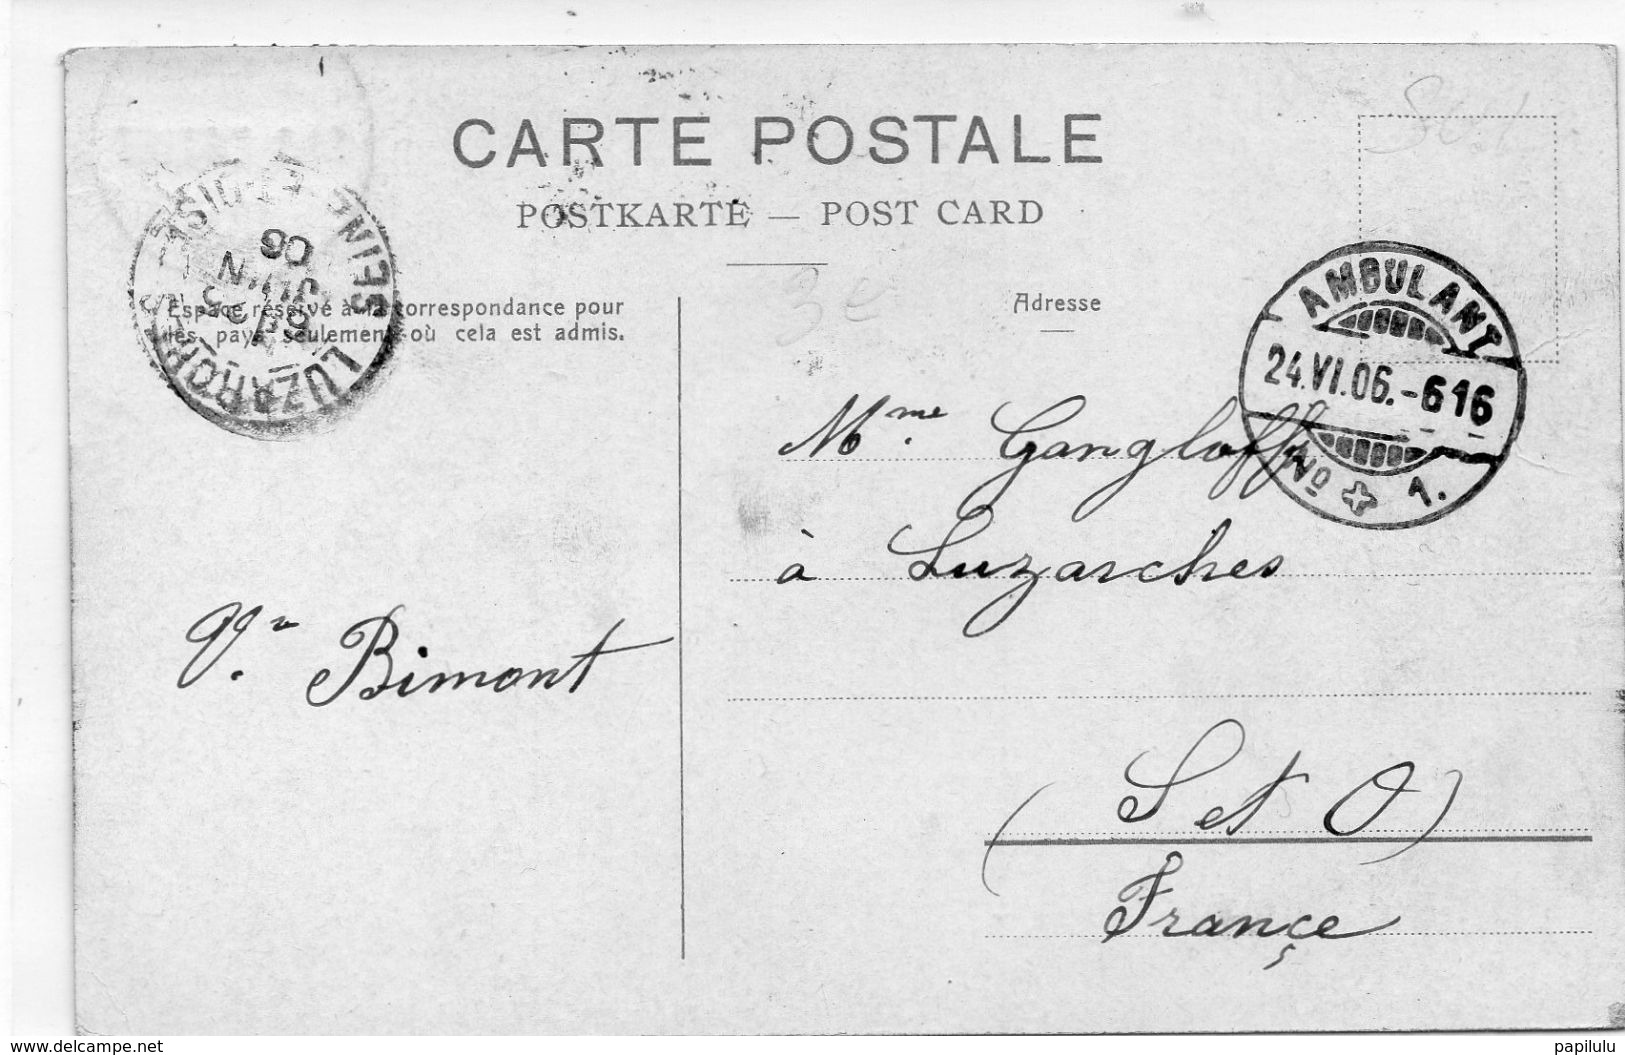 CARTE POSTALE
POSTKARTE — POST CARD
Espace réservé à la correspondance pour
les pays seulement où cela est admis.
Adresse
SEINE-ET-OISE
LUZARCHES
JUIN
06
AMBULANT
24.VI.06.-616
No 1.
3e
Mme Gangloff
à Luzarches
Vve Bimont
(S et O)
Françe
www.delcampe.net
papilulu